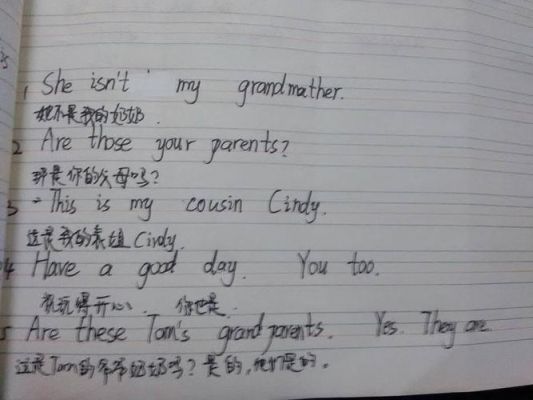 1, She isn't my grandmather.
她不是我的奶奶.
2 Are those your parents?
那是你的父母吗?
3 - This is my cousin Cindy.
这是我的表姐Cindy.
4 Have a good day. You too.
祝玩得开心. 你也是.
5 Are these Tom's grandparents. Yes. They are.
这是Tom的爷爷奶奶吗? 是的,他们是的。